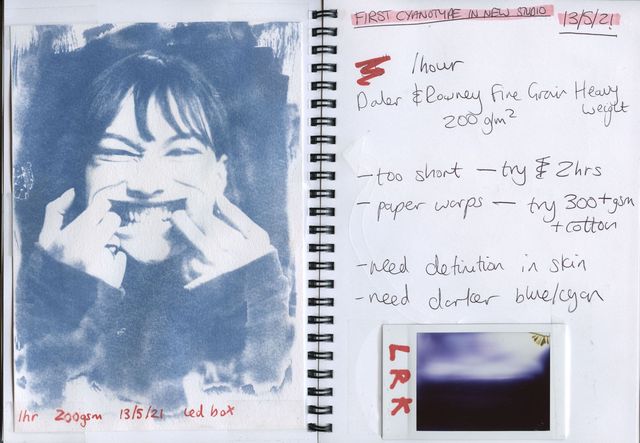 1hr 200gsm 13/5/21 led box
FIRST CYANOTYPE IN NEW STUDIO 13/5/21
1hour
Daler & Rowney Fine Grain Heavy
weight
200 g/m²
- too short - try 2hrs
- paper warps - try 300+gsm
+ cotton
- need definition in skin
- need darker blue/cyan
LRK